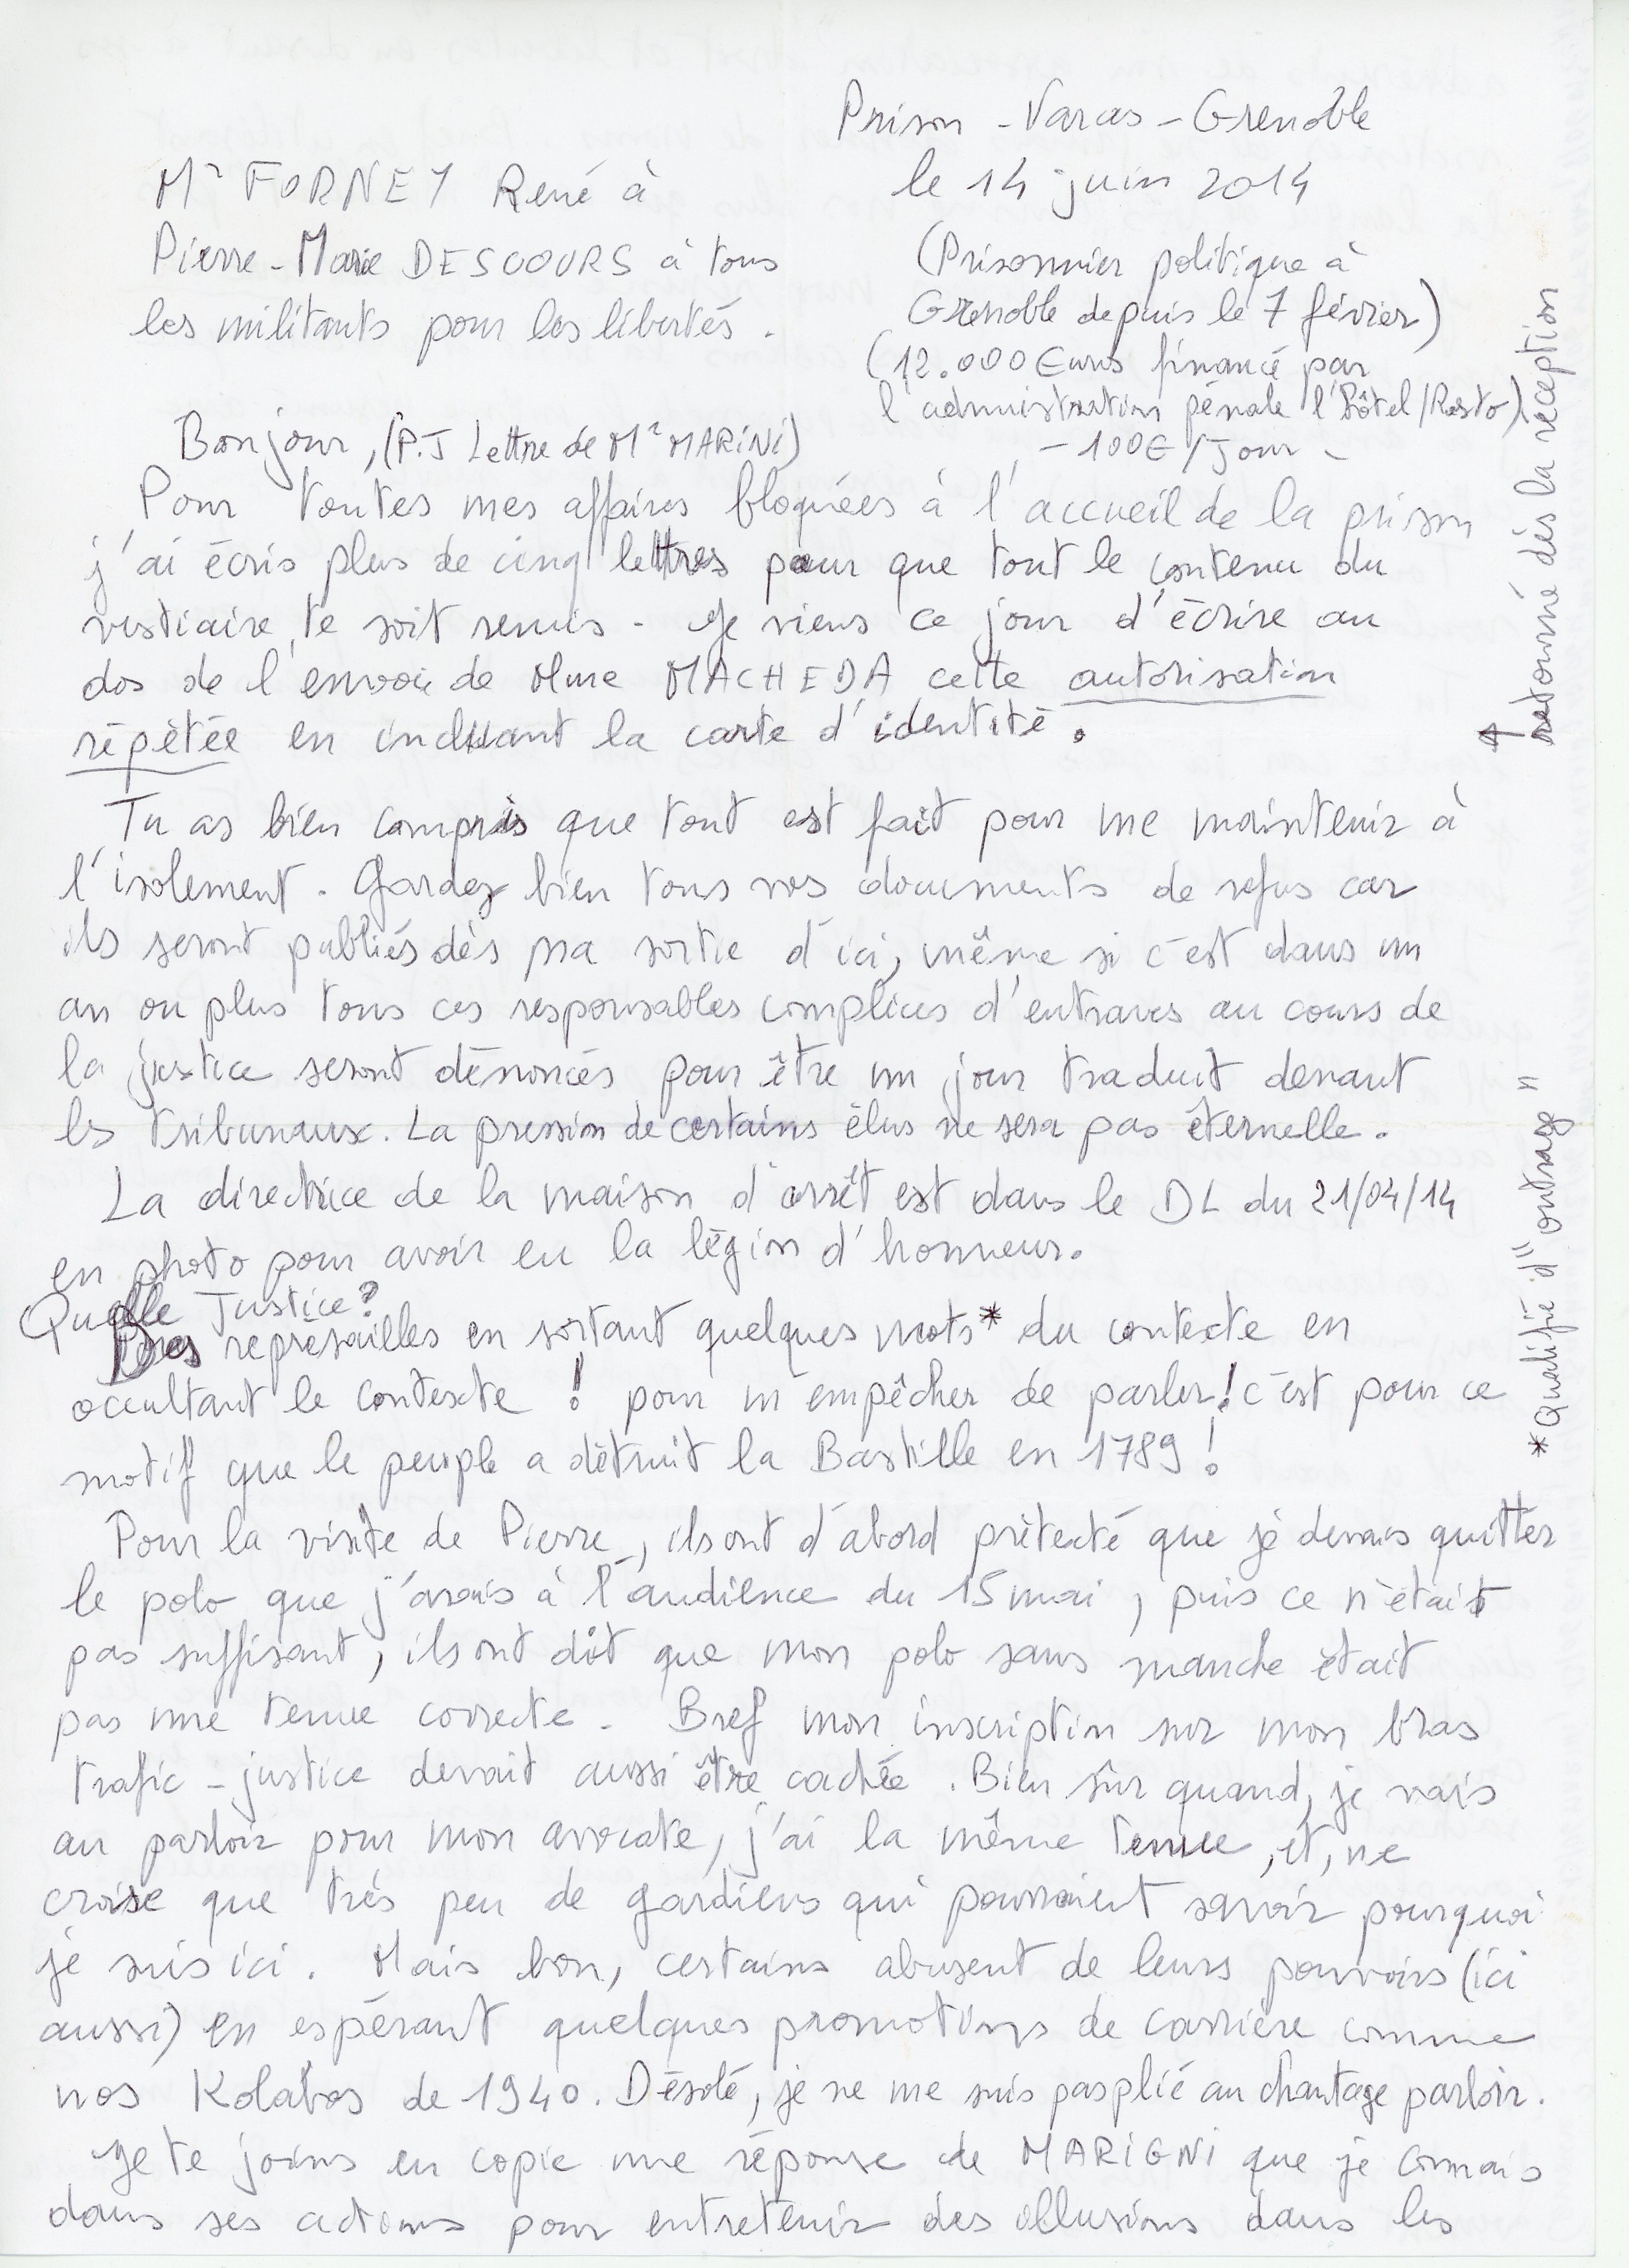 Prison - Varces - Grenoble
le 14 juin 2014
Mr FORNEY René à
Pierre-Marie DESCOURS à tous
les militants pour les libertés.
(Prisonnier politique à
Grenoble depuis le 7 février)
(12.000 Euros financé par
l'administration pénale l'Hôtel/Resto)
- 100€/Jour -
Bonjour, (P.J Lettre de Mr MARiNi)
Pour toutes mes affaires bloquées à l'accueil de la prison
j'ai écris plus de cinq lettres pour que tout le contenu du
vestiaire te soit remis. Je viens ce jour d'écrire au
dos de l'envoie de Mme MACHEDA cette autorisation
répétée en incluant la carte d'identité.
↑ retourné dès la réception
Tu as bien compris que tout est fait pour me maintenir à
l'isolement. Gardez bien tous vos documents de refus car
ils seront publiés dès ma sortie d'ici, même si c'est dans un
an ou plus tous ces responsables complices d'entraves au cours de
la justice seront dénoncés pour être un jour traduit devant
les tribunaux. La pression de certains élus ne sera pas éternelle.
La directrice de la maison d'arrêt est dans le DL du 21/04/14
en photo pour avoir eu la légion d'honneur.
Quelle Justice?
Des représailles en sortant quelques mots* du contexte en
occultant le contexte ! pour m'empêcher de parler! c'est pour ce
motif que le peuple a détruit la Bastille en 1789 !
* Qualifié d'"outrage"
Pour la visite de Pierre, ils ont d'abord prétexté que je devais quitter
le polo que j'avais à l'audience du 15 mai, puis ce n'était
pas suffisant, ils ont dit que mon polo sans manche était
pas une tenue correcte. Bref mon inscription sur mon bras
trafic-justice devait aussi être cachée. Bien sûr quand, je vais
au parloir pour mon avocate, j'ai la même tenue, et, ne
croise que très peu de gardiens qui pourraient savoir pourquoi
je suis ici. Mais bon, certains abusent de leurs pouvoirs (ici
aussi) en espérant quelques promotions de carrière comme
nos Kolabos de 1940. Désolé, je ne me suis pas plié au chantage parloir.
Je te joins en copie une réponse de MARIGNI que je connais
dans ses actions pour entretenir des illusions dans les